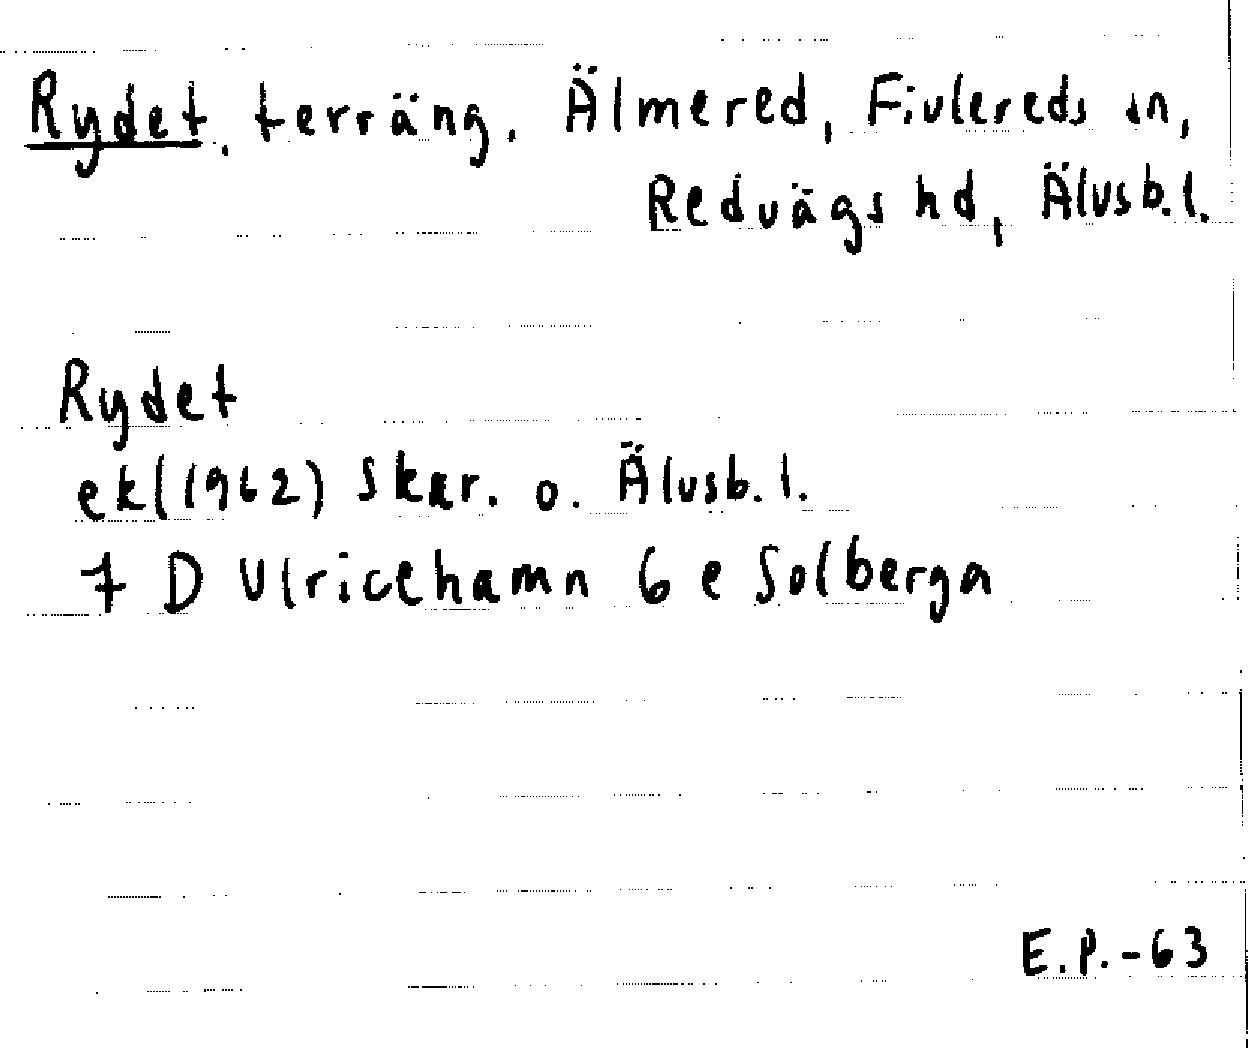 Rydet, terräng. Älmered, Fivlereds sn,
Redvägs hd, Älvsb.l.
Rydet
ek(1962) Skar. o. Älvsb.l.
7 D Ulricehamn 6 e Solberga
E.P.-63